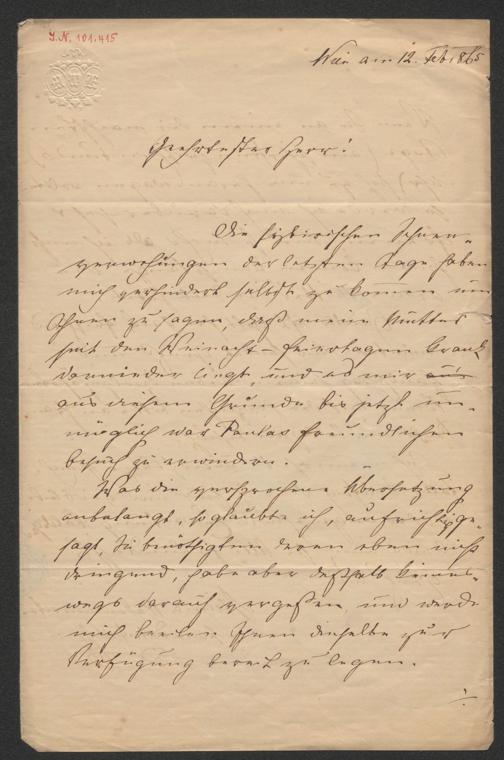 J.N. 101.415
Wien am 12. Feb 1865
Geehrtester Herr!
Die sybirischen Schnee-
verwehungen der letzten Tage haben
mich verhindert selbst zu kommen um
Ihnen zu sagen, daß meine Mutter
seit den Weinacht-feiertagen krank
darnieder liegt, und es mir
aus diesem Grunde bis jetzt un-
möglich war freundlichen
besuch zu erwiedern.
Was die versprochene Übersetzung
anbelangt, so glaubte ich, aufrichtig ge-
sagt, Sie benöthigten deren eben nicht
dringend, habe aber deßhalb keines-
wegs darauf vergeßen, und werde
mich beeilen Ihnen dieselbe zur
Verfügung bereit zu legen.